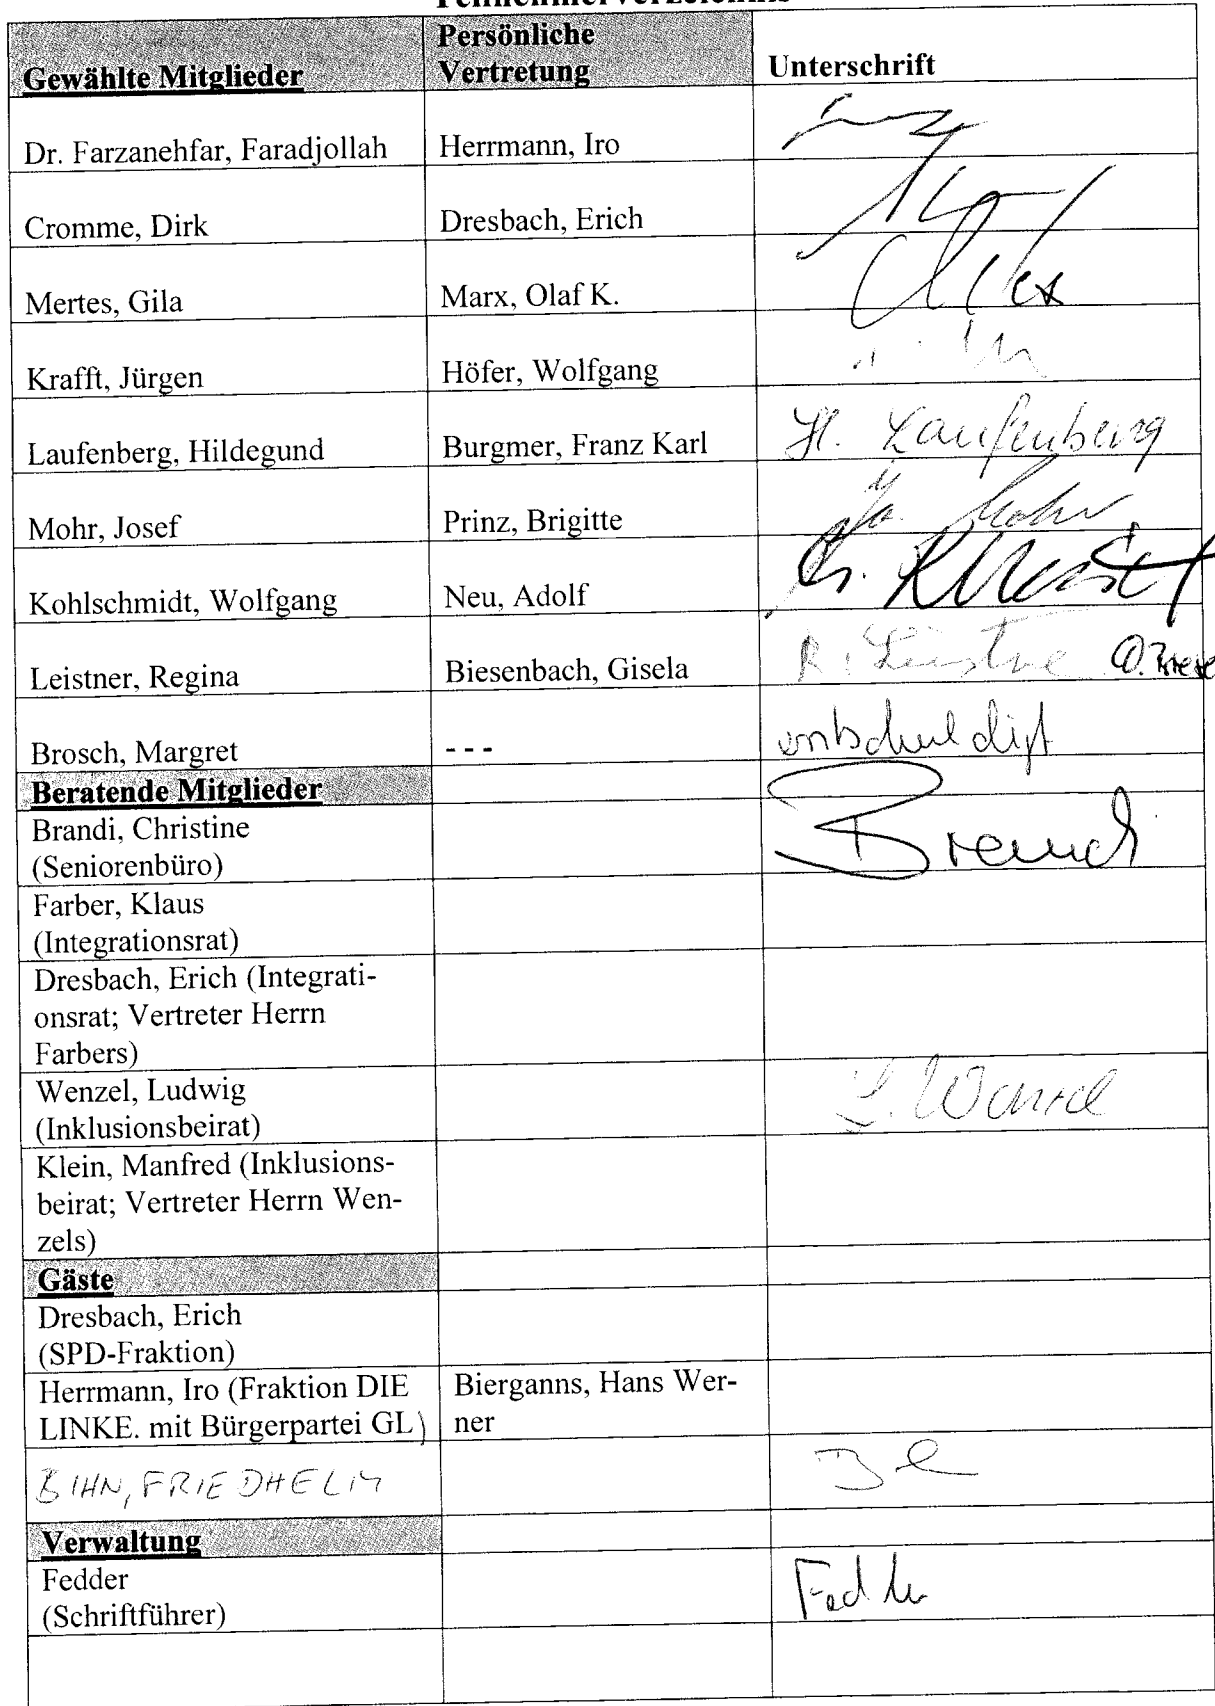 Teilnehmerverzeichnis
Gewählte Mitglieder
Persönliche
Vertretung
Unterschrift
Dr. Farzanehfar, Faradjollah
Herrmann, Iro
Cromme, Dirk
Dresbach, Erich
Mertes, Gila
Marx, Olaf K.
Krafft, Jürgen
Höfer, Wolfgang
Laufenberg, Hildegund
Burgmer, Franz Karl
H. Laufenberg
Mohr, Josef
Prinz, Brigitte
Mohr
Kohlschmidt, Wolfgang
Neu, Adolf
Leistner, Regina
Biesenbach, Gisela
R. Leistne
Brosch, Margret
---
entschuldigt
Beratende Mitglieder
Brandi, Christine
(Seniorenbüro)
Brandi
Farber, Klaus
(Integrationsrat)
Dresbach, Erich (Integrati-
onsrat; Vertreter Herrn
Farbers)
Wenzel, Ludwig
(Inklusionsbeirat)
L. Wenzel
Klein, Manfred (Inklusions-
beirat; Vertreter Herrn Wen-
zels)
Gäste
Dresbach, Erich
(SPD-Fraktion)
Herrmann, Iro (Fraktion DIE
LINKE. mit Bürgerpartei GL)
Bierganns, Hans Wer-
ner
BIHN, FRIEDHELM
Verwaltung
Fedder
(Schriftführer)
Fedder